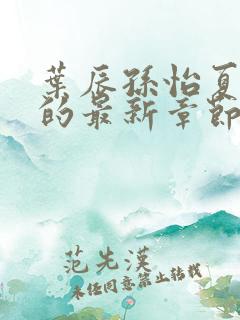 葉辰孫怡夏
的最新章節
范先漢
未经同意禁止转载